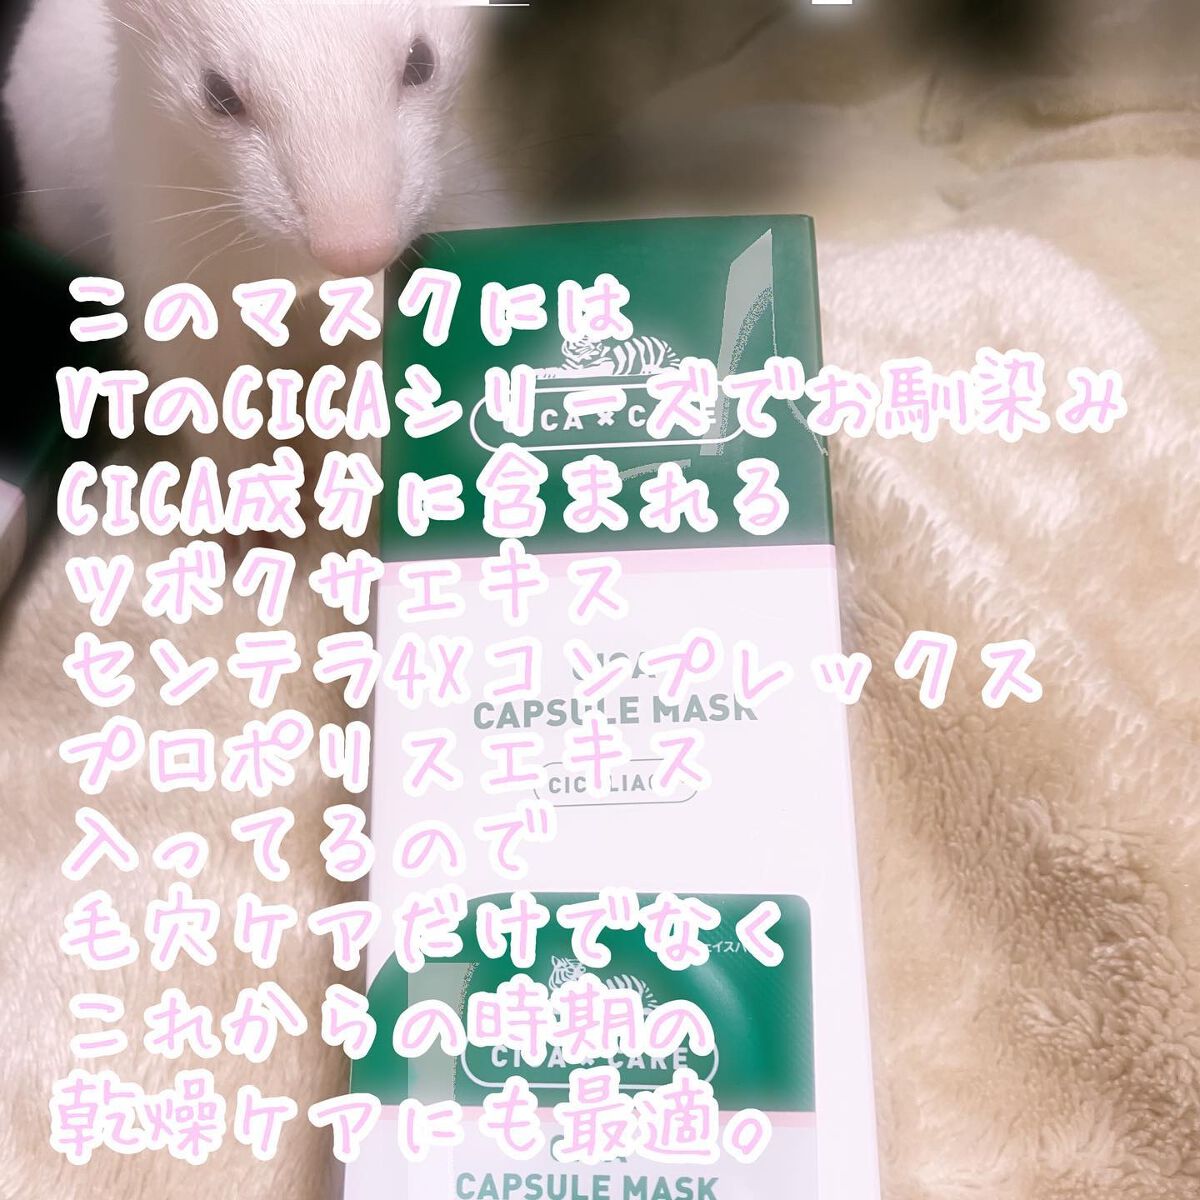 このマスクには
VTのCICAシリーズでお馴染み
CICA成分に含まれる
ツボクサエキス
センテラ4Xコンプレックス
プロポリスエキス
入ってるので
毛穴ケアだけでなく
これからの時期の
乾燥ケアにも最適。
CICA × CARE
CICA
CAPSULE MASK
CICA × CARE
CICA
CAPSULE MASK